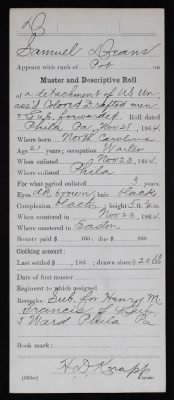 D
Samuel Deans
Appears with rank of Pvt on
Muster and Descriptive Roll
of a detachment of U.S. Un-
ass'd Colored Drafted men
& Sub. forwarded. Roll dated
Phila Pa. Nov 25, 1864.
Where born North Carolina
Age 21 years; occupation Waiter
When enlisted Nov 23, 1864.
Where enlisted Phila
For what period enlisted 3 years.
Eyes dk brown; hair black
Complexion black; height 5 ft. in.
When mustered in Nov 23, 1864.
Where mustered in Easton
Bounty paid $ 100; due $ 100
Clothing account:
Last settled , 186 ; drawn since $
Date of first muster
Regiment to which assigned
Remarks: Sub. for Henry M.
Francis of Sub
3 Ward Phila Pa
Book mark:
H D Knapp
Copyist.